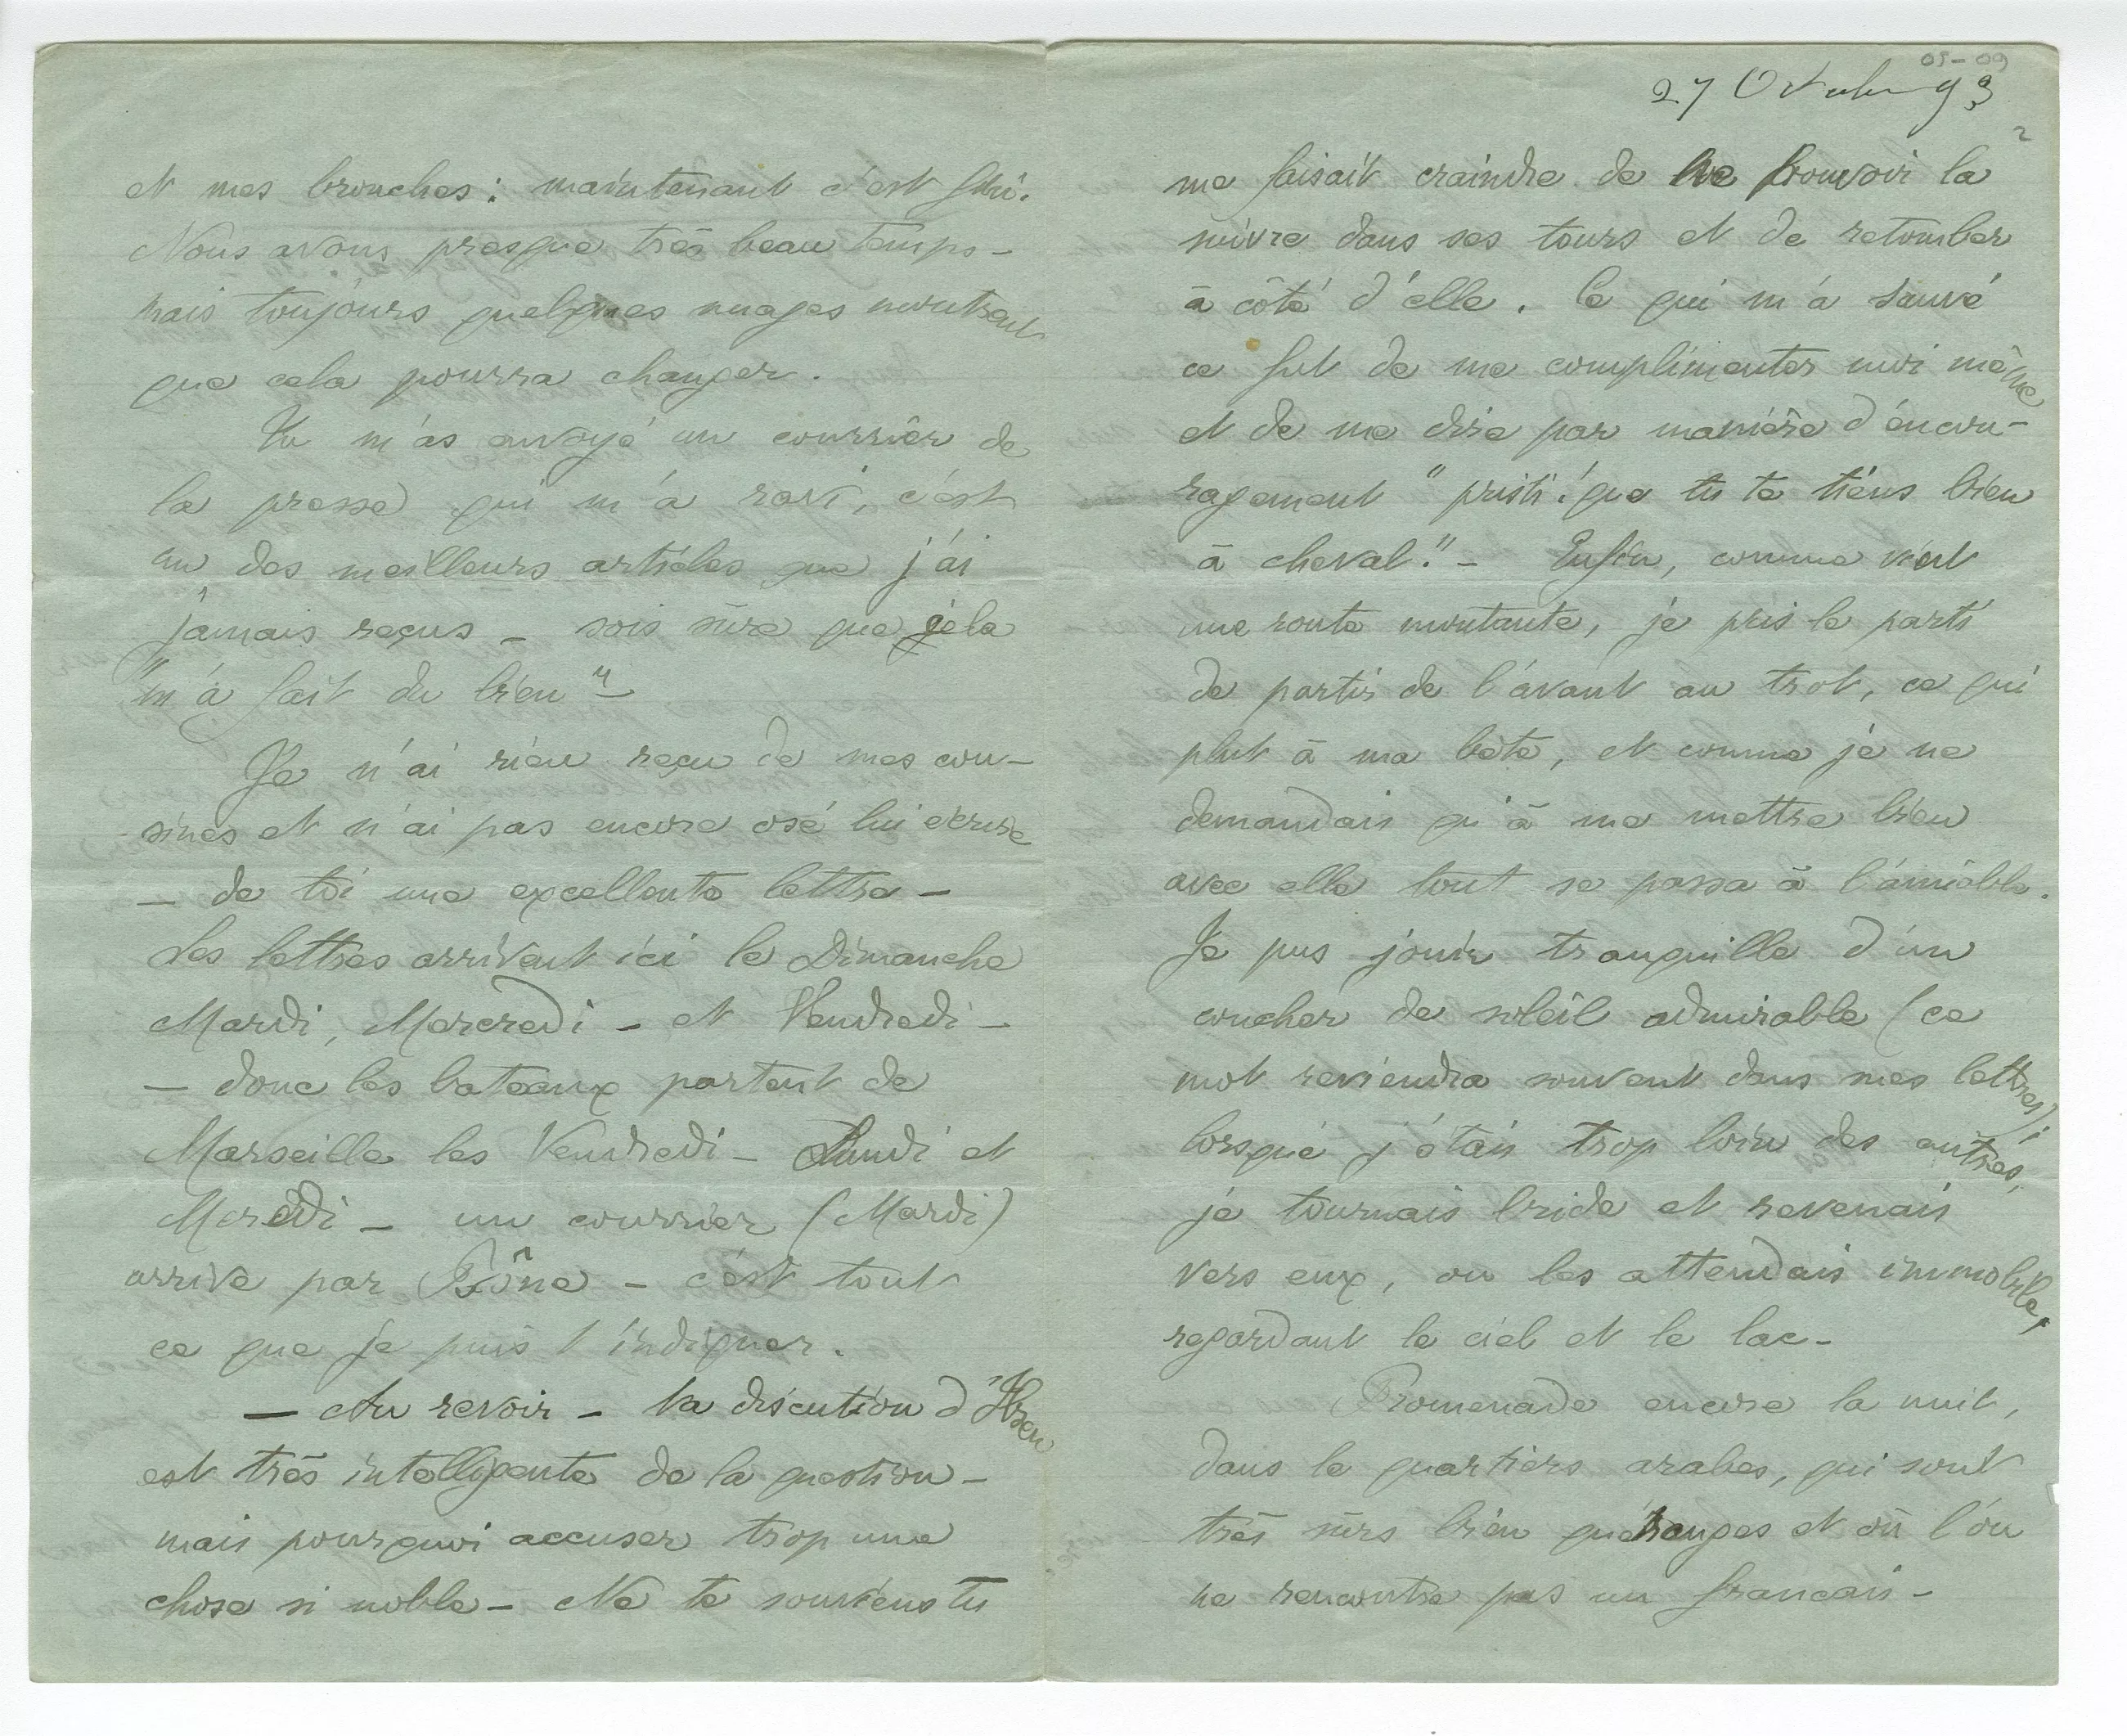 et mes bronches : maintenant c'est fini.
Nous avons presque très beau temps –
mais toujours quelques nuages montrent
que cela pourra changer.
Tu m'as envoyé un courrier de
la presse qui m'a ravi, c'est
un des meilleurs articles que j'ai
jamais reçus – sois sûre que cela
"m'a fait du bien" –
Je n'ai rien reçu de mes cou-
sines et n'ai pas encore osé lui écrire
– de toi une excellente lettre –
Les lettres arrivent ici le Dimanche
Mardi, Mercredi – et Vendredi –
– donc les bateaux partent de
Marseille les Vendredi – Lundi et
Mercredi – un courrier (Mardi)
arrive par Bône – c'est tout
ce que je puis t'indiquer.
– Au revoir – Ta discution d'Ibsen
est très intelligente de la question –
mais pourquoi accuser trop une
chose si noble – Ne te souviens tu
05-09
27 Octobre 93
2
me faisait craindre de ne pouvoir la
suivre dans ses tours et de retomber
à côté d'elle. Ce qui m'a sauvé
ce fut de me complimenter moi même
et de me dire par manière d'encou-
ragement "pristi ! que tu te tiens bien
à cheval." – Enfin, comme vient
une route montante, je pris le parti
de partir de l'avant au trot, ce qui
plut à ma bête, et comme je ne
demandais qu'à me mettre bien
avec elle tout se passa à l'amiable.
Je pus jouir tranquille d'un
coucher de soleil admirable (ce
mot reviendra souvent dans mes lettres) ;
lorsque j'étais trop loin des autres,
je tournais bride et revenais
vers eux, ou les attendais immobile,
regardant le ciel et le lac –
Promenade encore la nuit,
dans le quartiers arabes, qui sont
très sûrs bien qu'étranges et où l'on
ne rencontre pas un français –